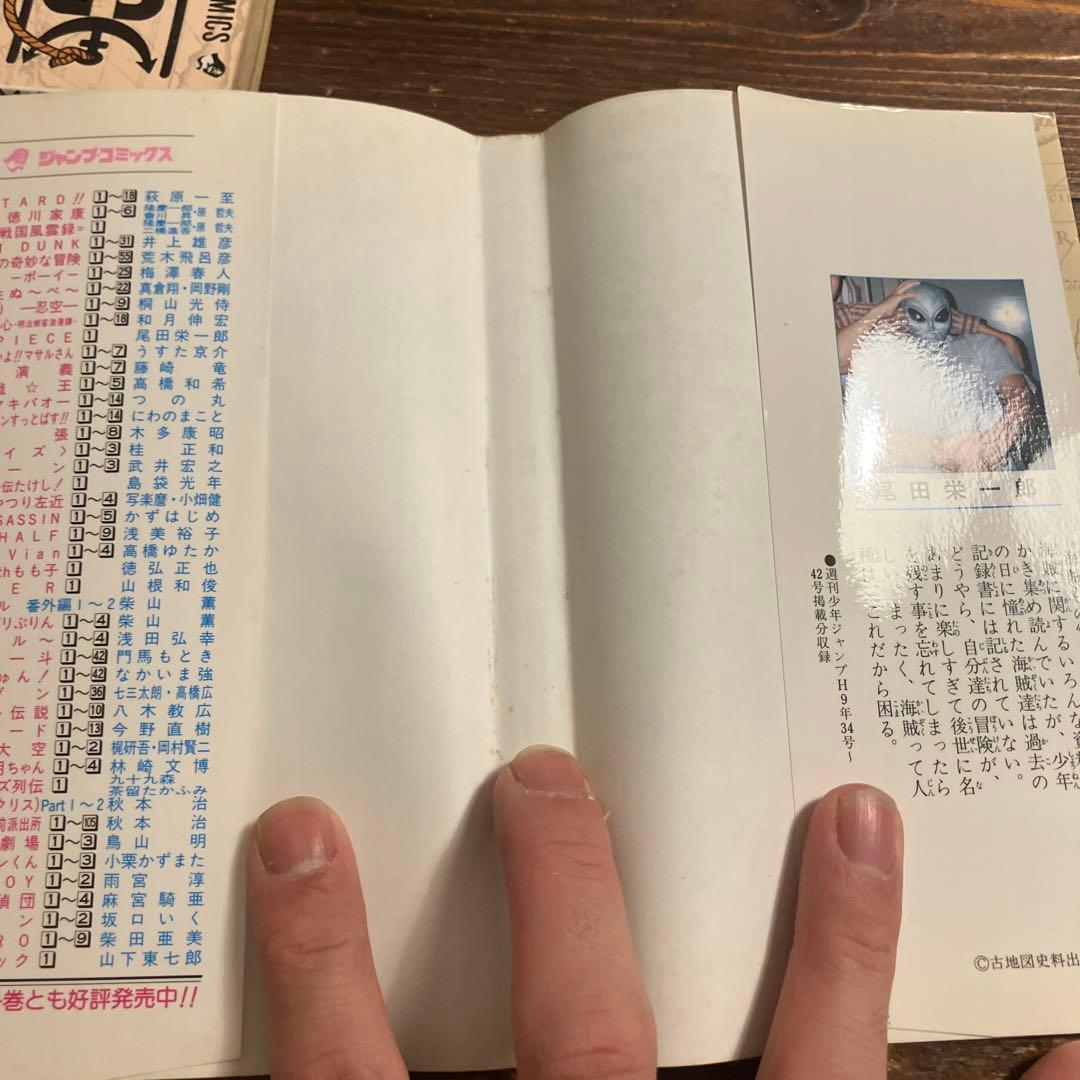 OMICS
ジャンプ・コミックス
TARD!! 1〜18 萩原一至
徳川家康 1〜6 隆慶一郎・會川昇・原哲夫
戦国風雲録= 1 隆慶一郎・二橋進吾・原哲夫
DUNK 1〜31 井上雄彦
の奇妙な冒険 1〜55 荒木飛呂彦
−ボーイ− 1〜25 梅澤春人
ぬ〜べ〜 1〜22 真倉翔・岡野剛
―忍空― 1〜9 桐山光侍
心−明治剣客浪漫譚− 1〜18 和月伸宏
PIECE 1 尾田栄一郎
よ!!マサルさん 1〜7 うすた京介
演義 1〜7 藤崎竜
戯☆王 1〜5 高橋和希
マキバオー 1〜14 つの丸
ンすっとばす!! 1〜14 にわのまこと
張 1〜8 木多康昭
イズ> 1〜3 桂正和
ーン 1〜3 武井宏之
伝たけし! 1 島袋光年
やつり左近 1〜4 写楽麿・小畑健
SASSIN 1〜5 かずはじめ
HALF 1〜9 浅美裕子
Vian 1〜4 高橋ゆたか
thもも子 1 徳弘正也
ER 1 山根和俊
ル 番外編1〜2 柴山薫
ぷりん 1〜4 柴山薫
ル〜 1〜4 浅田弘幸
一斗 1〜42 門馬もとき
ゅん! 1〜42 なかいま強
グン 1〜36 七三太朗・高橋広
伝説 1〜10 八木教広
ード 1〜13 今野直樹
大空 1〜2 梶研吾・岡村賢二
月ちゃん 1〜4 林崎文博
ズ列伝 1 九十九森 茶留たかふみ
クリス)Part1〜2 秋本治
前派出所 1〜105 秋本治
劇場 1〜3 鳥山明
ンくん 1〜3 小栗かずまた
OY 1〜2 雨宮淳
偵団 1〜4 麻宮騎亜
ン 1〜2 坂口いく
RO 1〜9 柴田亜美
ック 1 山下東七郎
巻とも好評発売中!!
尾田栄一郎
海賊に関するいろんな資料
かき集め読んでいたが、少年
の日に憧れた海賊達は過去の
記録書には記されていない。
どうやら、自分達の冒険が、
あまりに楽しすぎて後世に名
を残す事を忘れてしまったら
しい。まったく、海賊って人
種は、これだから困る。
●週刊少年ジャンプH9年34号〜
42号掲載分収録
©古地図史料出